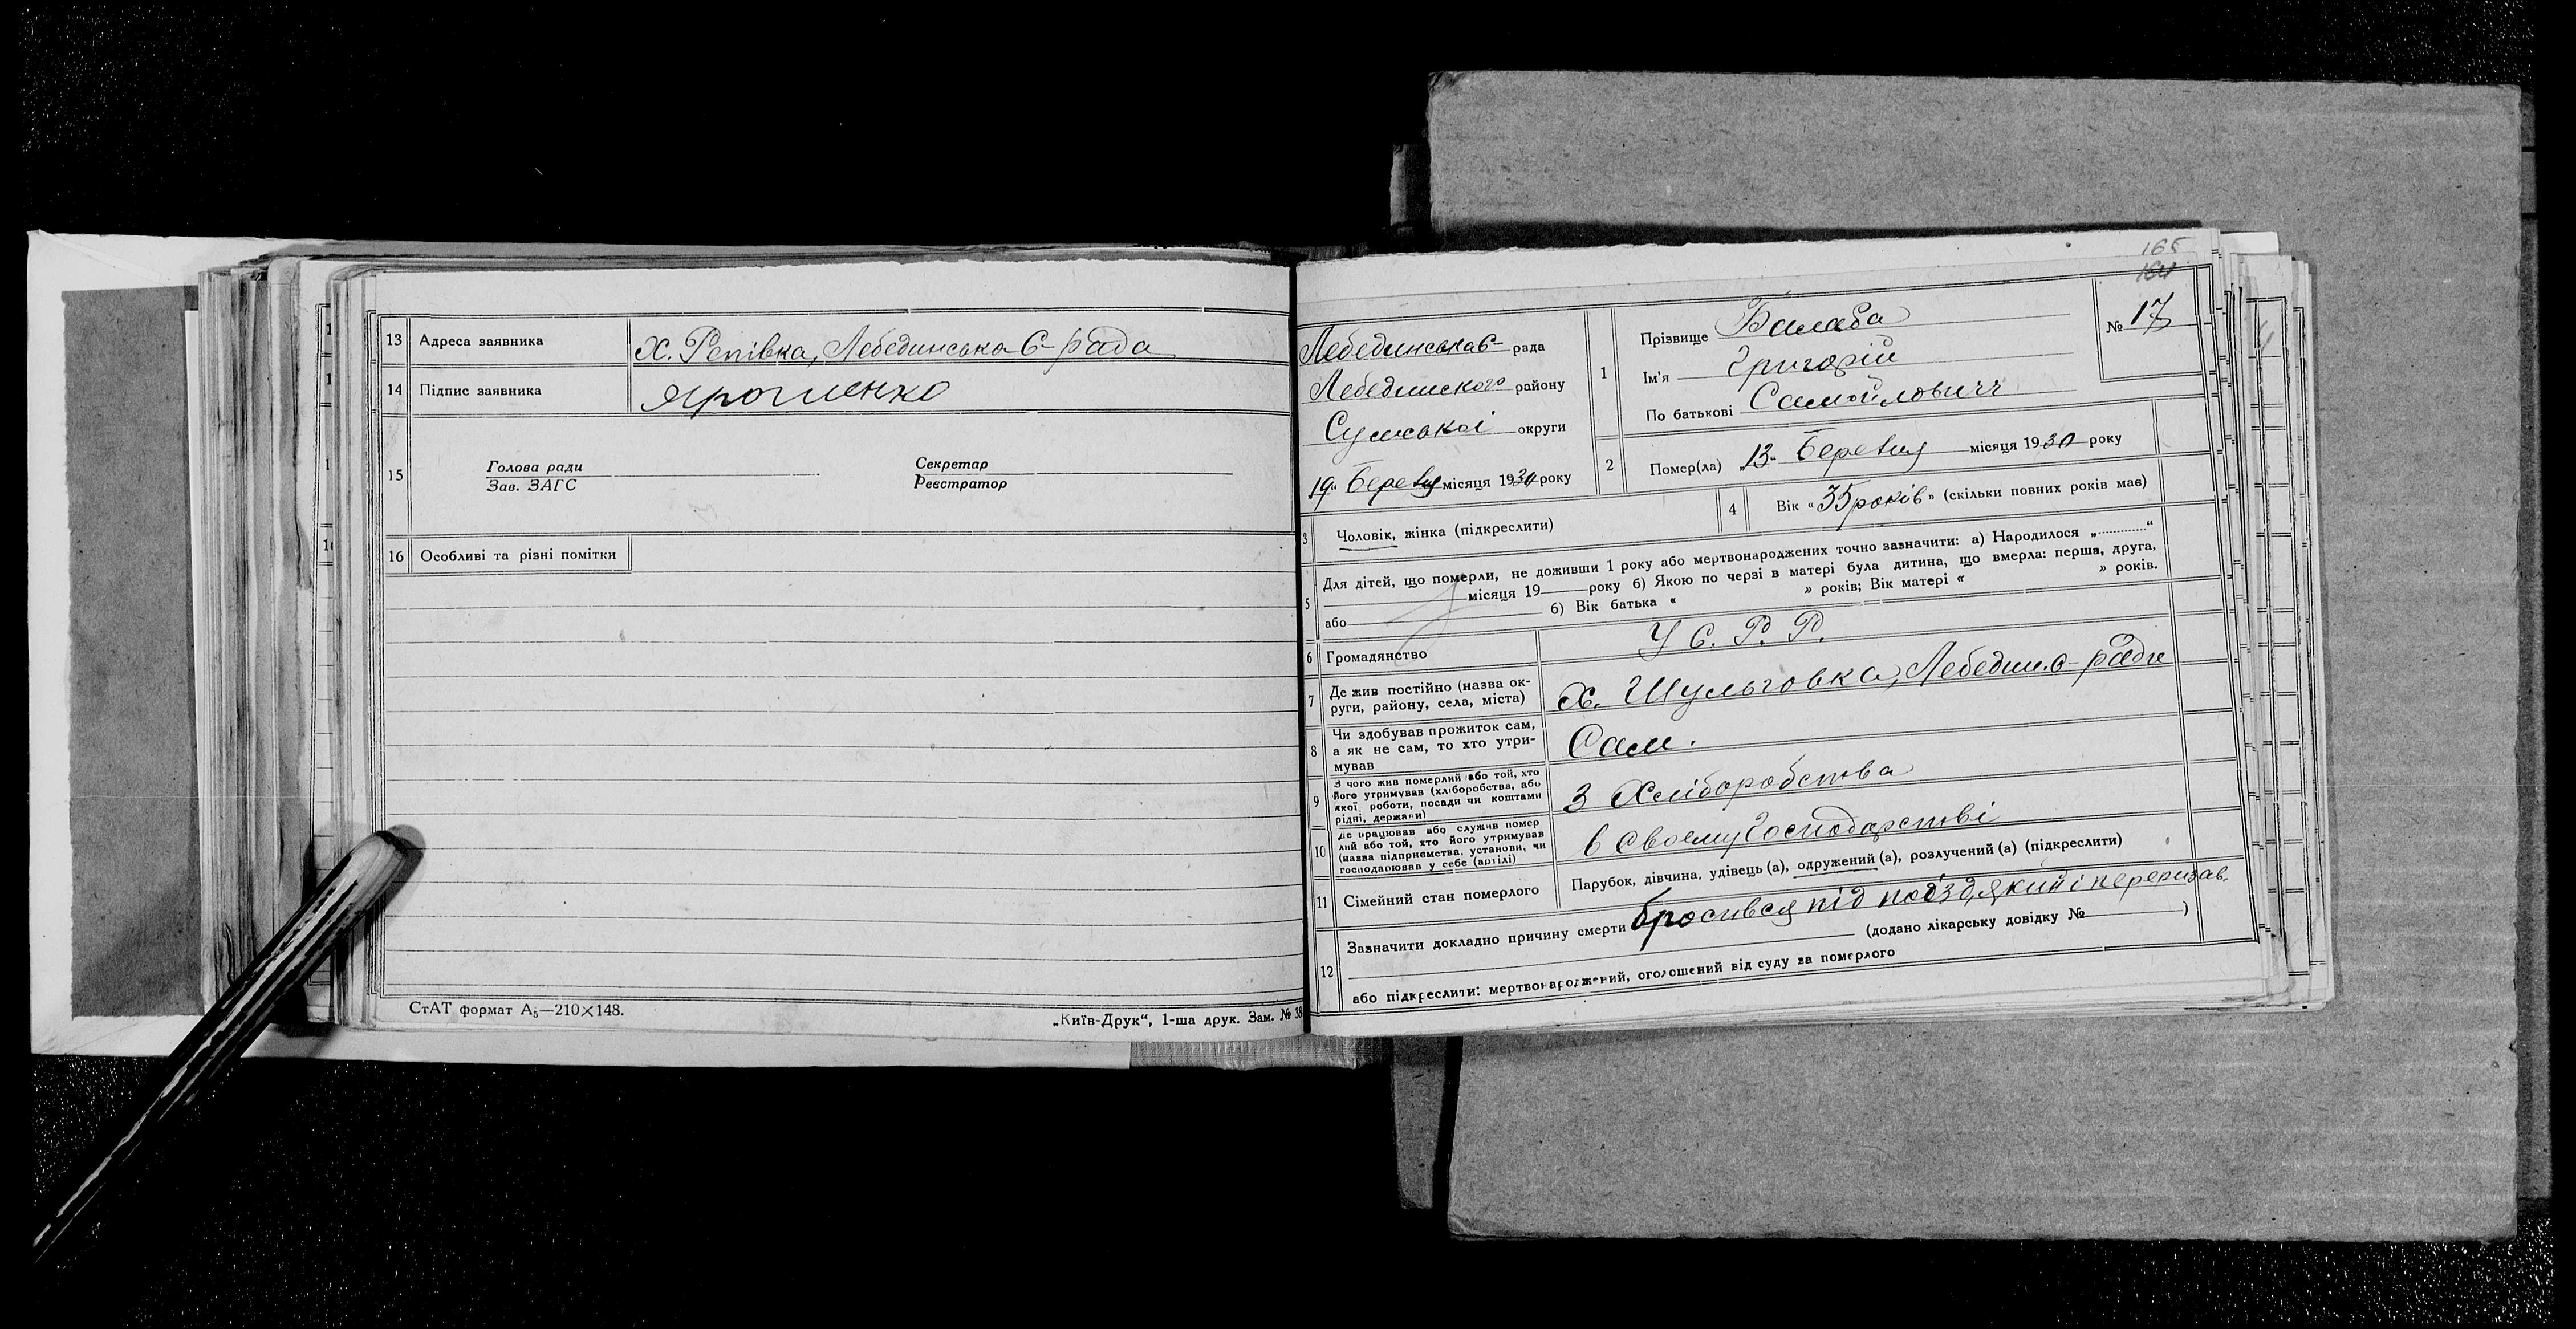 13 Адреса заявника Х. Репівка, Лебединська С-рада
14 Підпис заявника Ярошенко
15 Голова ради Секретар
Зав. ЗАГС Реєстратор
16 Особливі та різні помітки
СтАТ формат А5—210×148.
„Київ-Друк“, 1-ша друк. Зам. № 38
165
164
Лебединська С- рада
Лебединского району
Сумської округи
„19“ Березня місяця 1930 року
1 Прізвище Балаба
Ім'я Григорій
По батькові Самойлович
№ 17
2 Помер(ла) „13“ Березня місяця 1930 року
3 Чоловік, жінка (підкреслити)
4 Вік «35 років» (скільки повних років має)
5 Для дітей, що померли, не доживши 1 року або мертвонароджених точно зазначити: а) Народилося „............“
місяця 19 року б) Якою по черзі в матері була дитина, що вмерла: перша, друга,
або б) Вік батька « » років; Вік матері « » років.
6 Громадянство У С. Р. Р.
7 Де жив постійно (назва ок-
руги, району, села, міста) х. Шульговка, Лебедин. С-ради
8 Чи здобував прожиток сам,
а як не сам, то хто утри-
мував Сам.
9 З чого жив померлий або той, хто
його утримував (хліборобства, або
якої роботи, посади чи коштами
рідні, держави) З Хліборобства
10 Де працював або служив помер
лий або той, хто його утримував
(назва підприємства, установи, чи
господарював у себе (артілі) в своему господарстві
11 Сімейний стан померлого Парубок, дівчина, удівець (а), одружений (а), розлучений (а) (підкреслити)
12 Зазначити докладно причину смерти бросився під поїзд, який і перерізав.
(додано лікарську довідку № )
або підкреслити: мертвонароджений, оголошений від суду за померлого